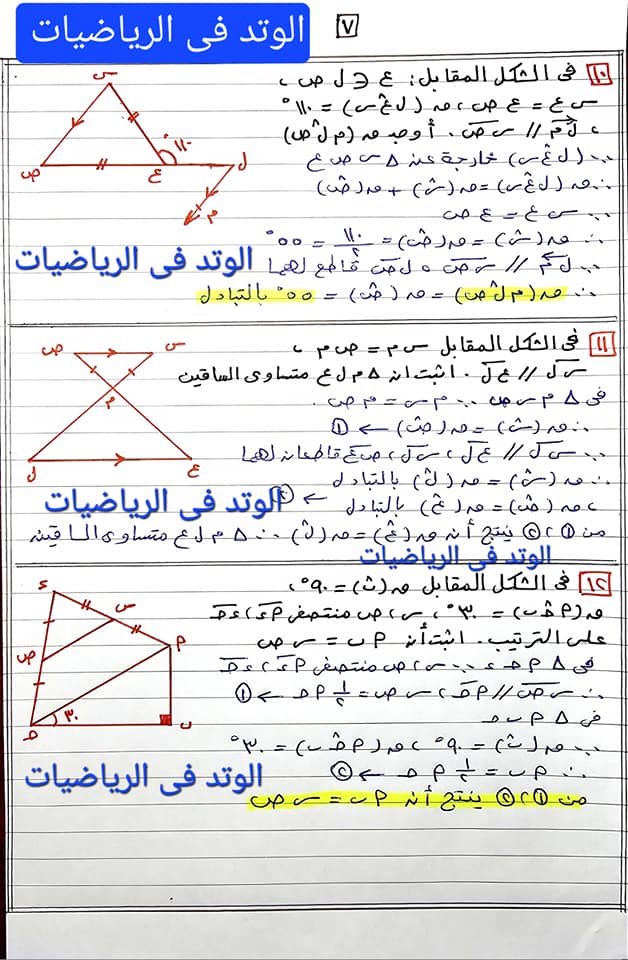 الوتد فى الرياضيات
٧
١٠ فى الشكل المقابل: ع ∈ ل ص ،
س ع = ع ص ، ق (ل ع س) = ١١٠°
، ل م // س ص . أوجد ق (م ل ص)
∵ (ل ع س) خارجة عن △ س ص ع
∴ ق (ل ع س) = ق (س) + ق (ص)
∵ س ع = ع ص
∴ ق (س) = ق (ص) = ١١٠/٢ = ٥٥°
∵ ل م // س ص ، ل ص قاطع لهما
∴ ق (م ل ص) = ق (ص) = ٥٥° بالتبادل
س
ص
ع
ل
م
١١٠°
الوتد فى الرياضيات
١١ فى الشكل المقابل س م = ص م ،
س ص // ع ل . اثبت ان △ م ل ع متساوى الساقين
فى △ م س ص ∵ م س = م ص .
∴ ق (س) = ق (ص) ← ١
∵ س ص // ع ل ، س ل ، ص ع قاطعان لهما
∴ ق (س) = ق (ل) بالتبادل
، ق (ص) = ق (ع) بالتبادل ← ٢
من ١ ، ٢ ينتج أن ق (ع) = ق (ل) ∴ △ م ل ع متساوى الساقين
ص
س
م
ل
ع
الوتد فى الرياضيات
الوتد فى الرياضيات
١٢ فى الشكل المقابل ق (ب) = ٩٠° ،
ق (أ ج ب) = ٣٠° ، س ، ص منتصف أ ء ، ء ج
على الترتيب . اثبت أن أ ب = س ص
فى △ أ ج ء ∵ س ، ص منتصف أ ء ، ء ج
∴ س ص // أ ج ، س ص = ١/٢ أ ج ← ١
فى △ أ ب ج
∵ ق (ب) = ٩٠° ، ق (أ ج ب) = ٣٠°
∴ أ ب = ١/٢ أ ج ← ٢
من ١ ، ٢ ينتج أن أ ب = س ص
ء
س
أ
ص
ج
٣٠°
ب
الوتد فى الرياضيات